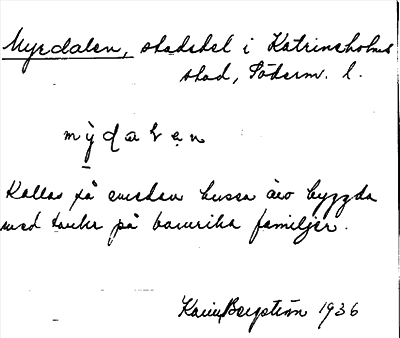 Myrdalen, stadsdel i Katrineholms
stad, Söderm. l.
mỳdalen
Kallas så emedan husen äro byggda
med tanke på barnrika familjer.
Karin Bergström 1936